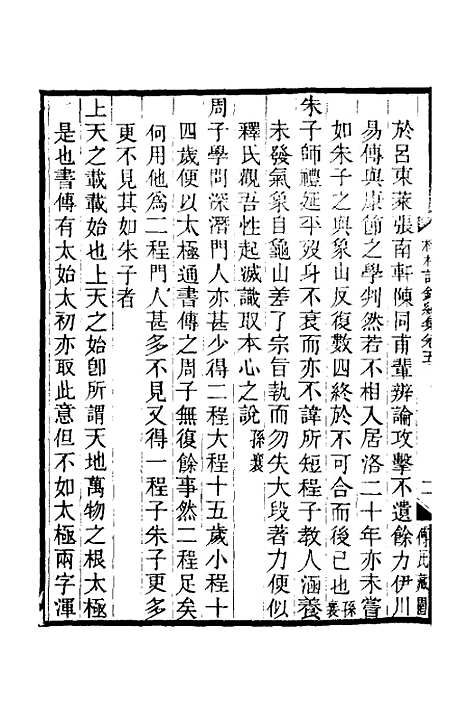 於呂東萊張南軒陳同甫輩辨論攻擊不遺餘力伊川
易傳與康節之學判然若不相入居洛二十年亦未嘗
如朱子之與象山反復數四終於不可合而後已也孫襄
朱子師禮延平歿身不衰而亦不諱所短程子教人涵養
未發氣象自龜山差了宗旨執而勿失大段著力便似
釋氏觀吾性起滅識取本心之說孫襄
周子學問深潛門人亦甚少得二程大程十五歲小程十
四歲便以太極通書傳之周子無復餘事然二程足矣
何用他為二程門人甚多不見又得一程子朱子更多
更不見其如朱子者
上天之載載始也上天之始卽所謂天地萬物之根太極
是也書傳有太始太初亦取此意但不如太極兩字渾
榕村語錄續集卷五
二
傅氏藏園